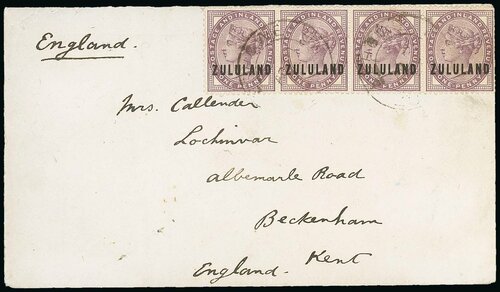 England.
POSTAGE AND INLAND REVENUE POSTAGE AND INLAND REVENUE POSTAGE AND INLAND REVENUE POSTAGE AND INLAND REVENUE
ZULULAND ZULULAND ZULULAND ZULULAND
ONE PENNY ONE PENNY ONE PENNY ONE PENNY
Mrs. Callender
Lochinvar
Albemarle Road
Beckenham
Kent
England.